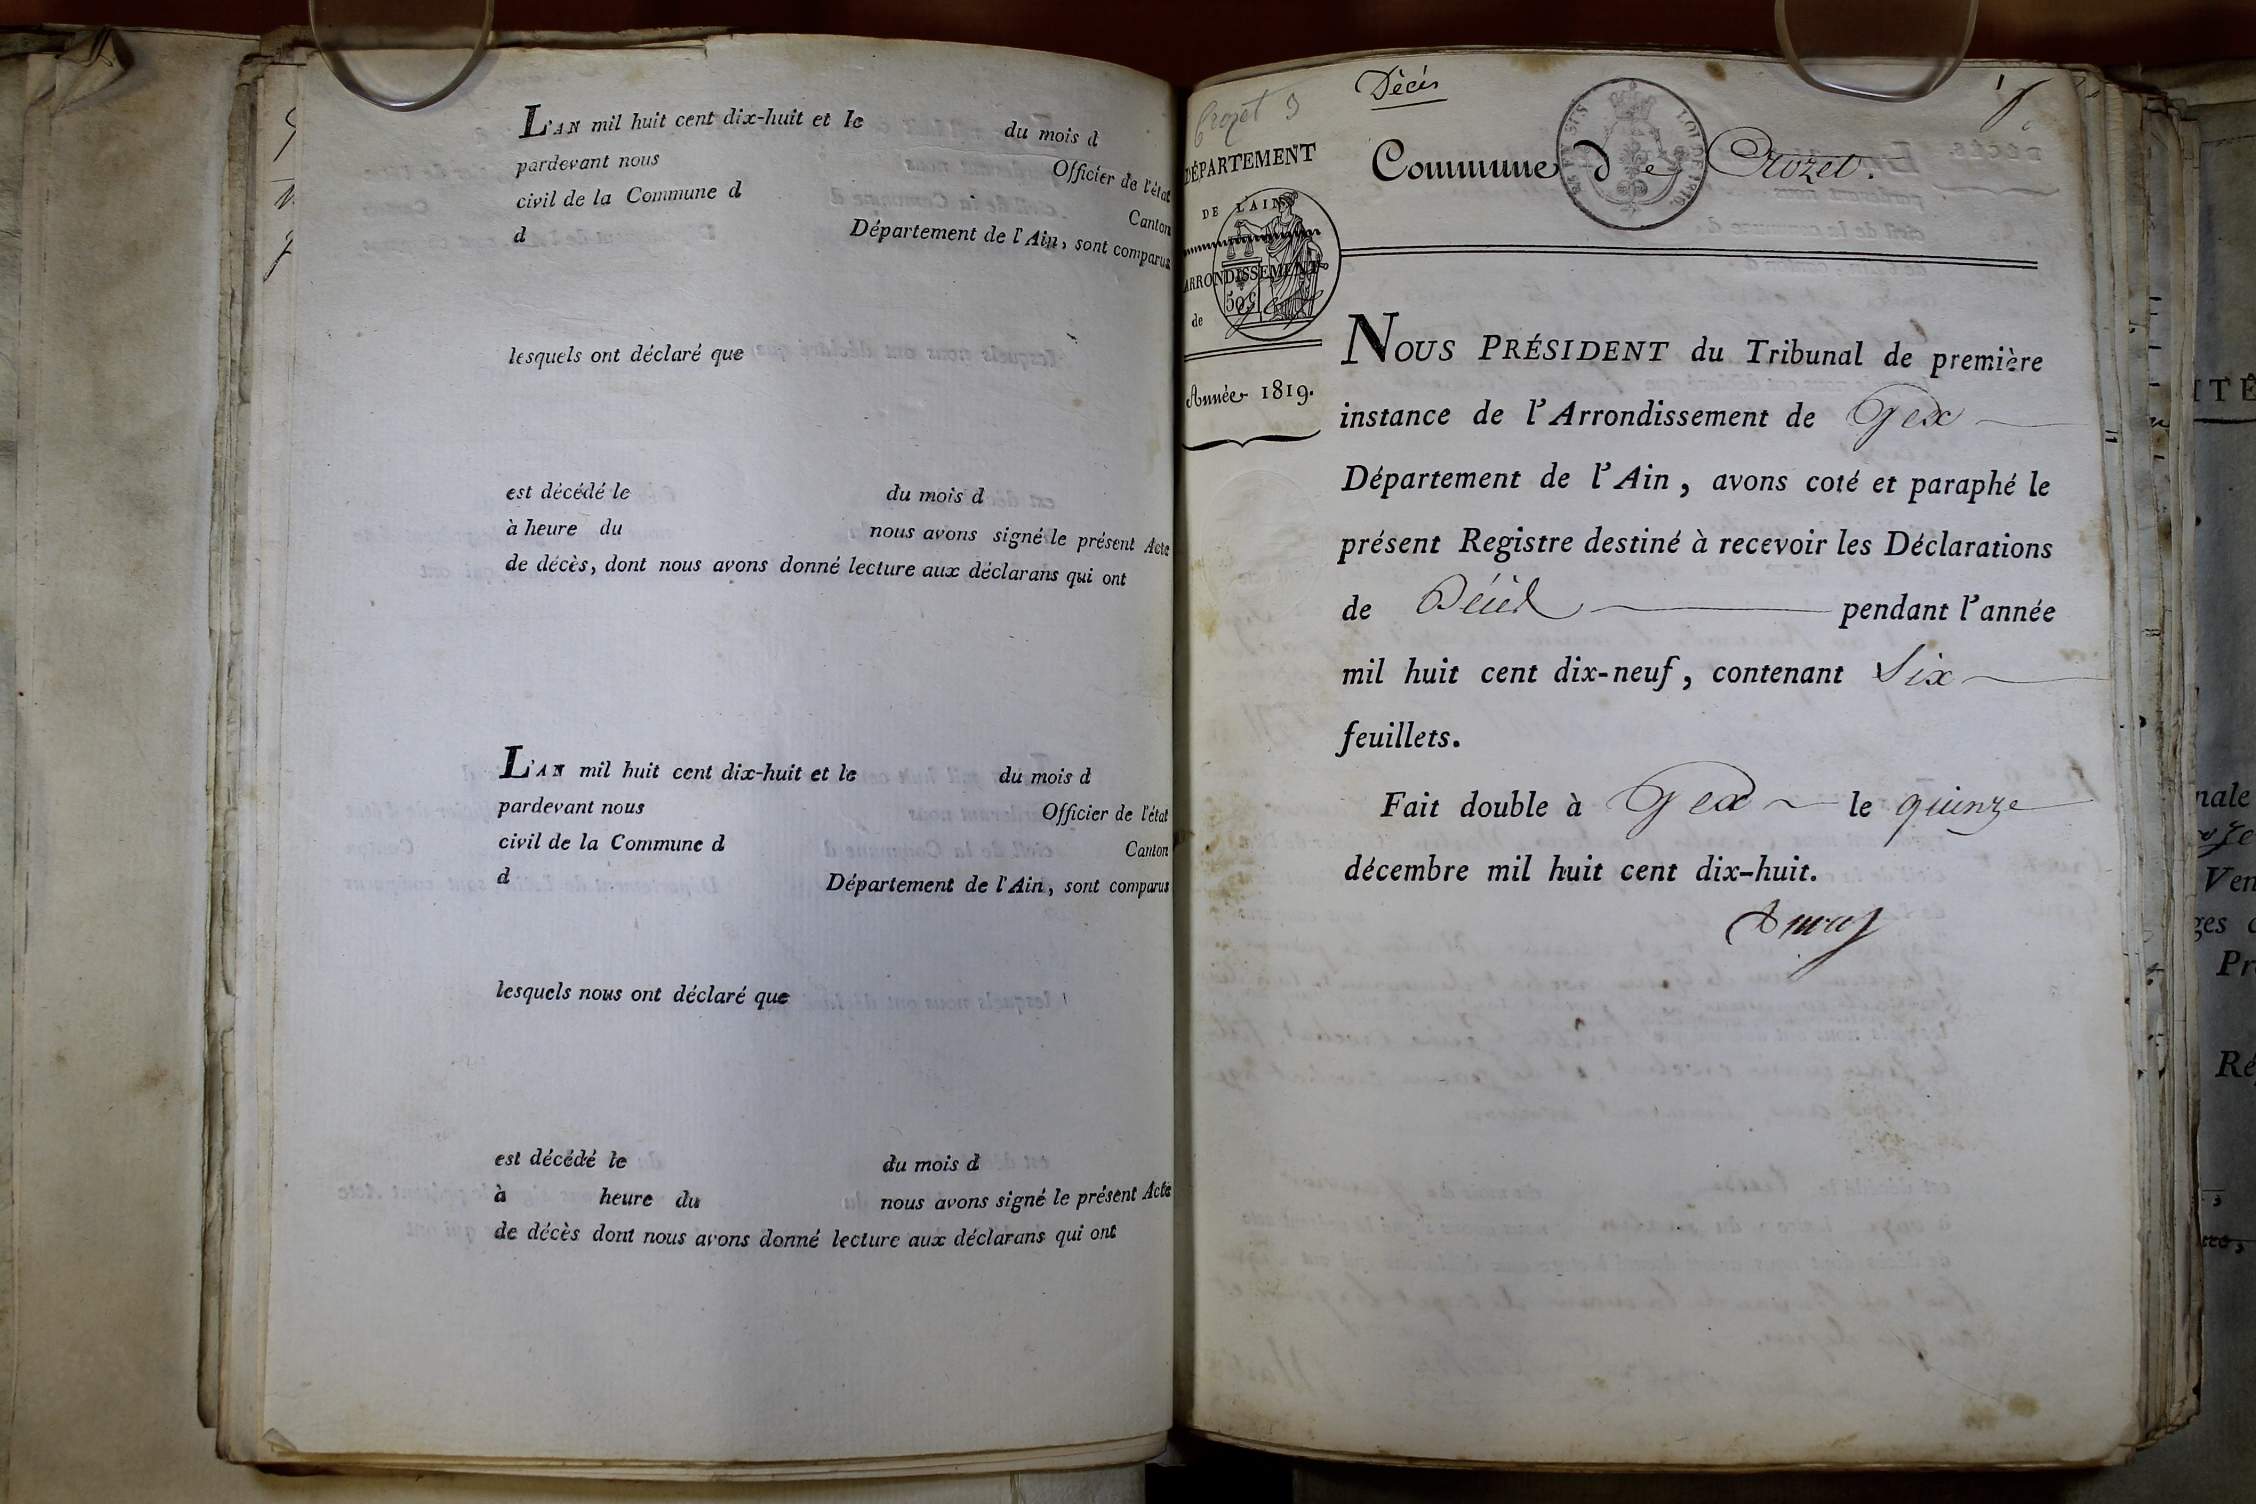 L'AN mil huit cent dix-huit et le du mois d
pardevant nous Officier de l'état
civil de la Commune d Canton
d Département de l'Ain, sont comparus
lesquels ont déclaré que
est décédé le du mois d
à heure du nous avons signé le présent Acte
de décès, dont nous avons donné lecture aux déclarans qui ont
L'AN mil huit cent dix-huit et le du mois d
pardevant nous Officier de l'état
civil de la Commune d Canton
d Département de l'Ain, sont comparus
lesquels nous ont déclaré que
est décédé le du mois d
à heure du nous avons signé le présent Acte
de décès dont nous avons donné lecture aux déclarans qui ont
Crozet 9
Décès
DÉPARTEMENT
DE L'AIN
ARRONDISSEMENT
50c
de Gex
Année 1819.
Commune de Crozet.
NOUS PRÉSIDENT du Tribunal de première
instance de l'Arrondissement de Gex
Département de l'Ain, avons coté et paraphé le
présent Registre destiné à recevoir les Déclarations
de Décès pendant l'année
mil huit cent dix-neuf, contenant Six
feuillets.
Fait double à Gex le quinze
décembre mil huit cent dix-huit.